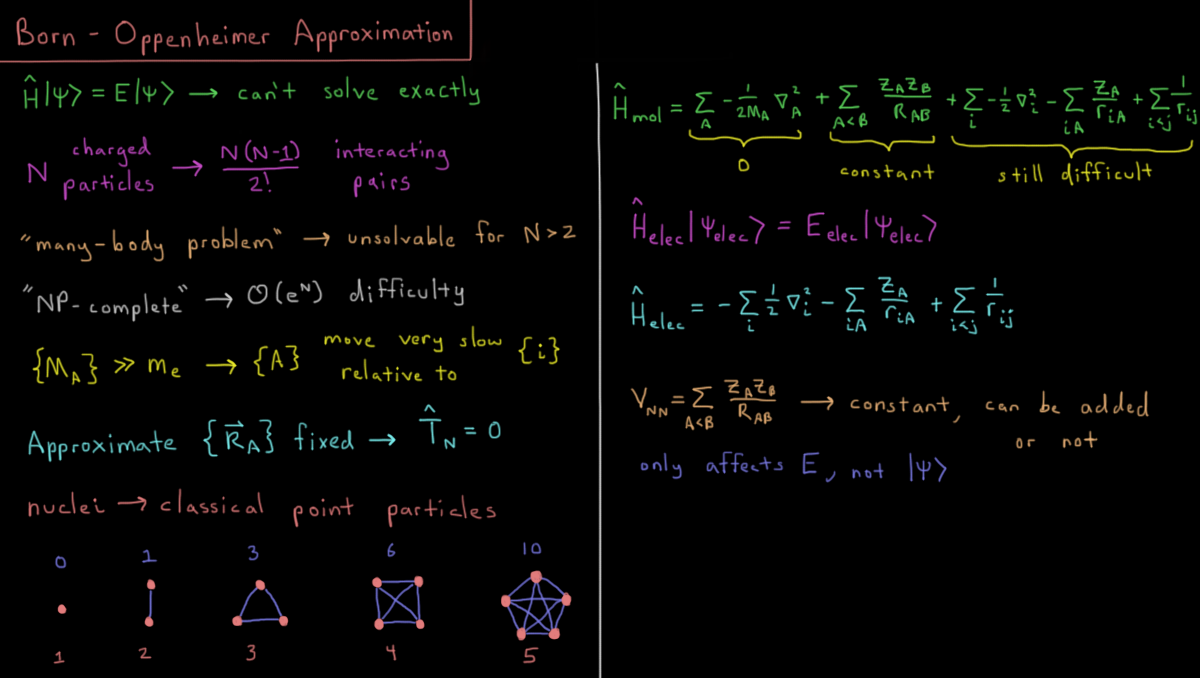 Born - Oppenheimer Approximation
Ĥ|Ψ⟩ = E|Ψ⟩ → can't solve exactly
N charged particles → N(N-1)/2! interacting pairs
"many-body problem" → unsolvable for N>2
"NP-complete" → O(e^N) difficulty
{M_A} ≫ m_e → {A} move very slow relative to {i}
Approximate {R⃗_A} fixed → T̂_N = 0
nuclei → classical point particles
0 1 3 6 10
1 2 3 4 5
Ĥ_mol = Σ_A -1/2M_A ∇²_A + Σ_A<B Z_A Z_B/R_AB + Σ_i -1/2 ∇²_i - Σ_iA Z_A/r_iA + Σ_i<j 1/r_ij
0 constant still difficult
Ĥ_elec|Ψ_elec⟩ = E_elec|Ψ_elec⟩
Ĥ_elec = -Σ_i 1/2 ∇²_i - Σ_iA Z_A/r_iA + Σ_i<j 1/r_ij
V_NN = Σ_A<B Z_A Z_B/R_AB → constant, can be added
or not
only affects E, not |Ψ⟩